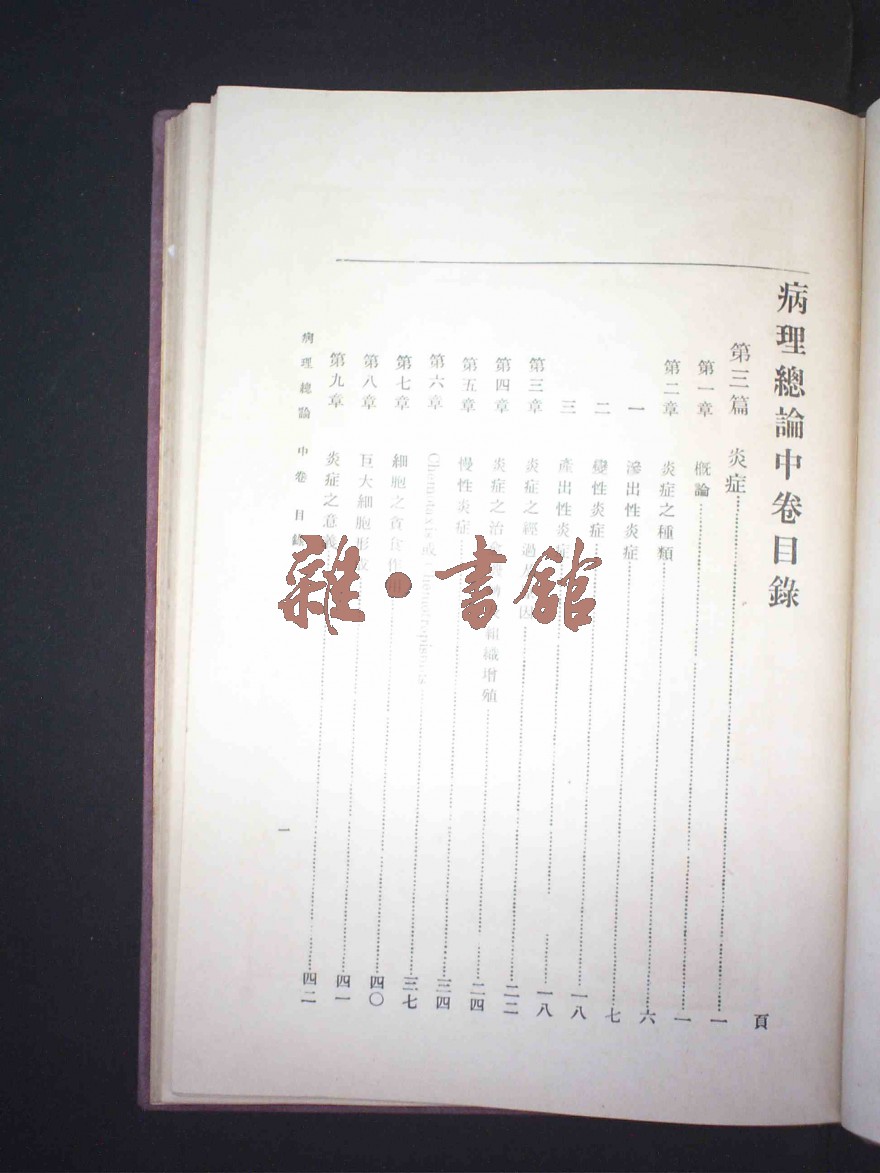 病理總論中卷目錄
頁
第三篇 炎症……一
第一章 概論……一
第二章 炎症之種類……六
一 滲出性炎症……七
二 變性炎症……一八
三 產出性炎症……一八
第三章 炎症之經過 因……二二
第四章 炎症之治 組織增殖……二四
第五章 慢性炎症……三四
第六章 或……三七
第七章 細胞之貪食作用……四〇
第八章 巨大細胞形成……四一
第九章 炎症之意義……四二
病理總論 中卷 目錄
一
雜·書館